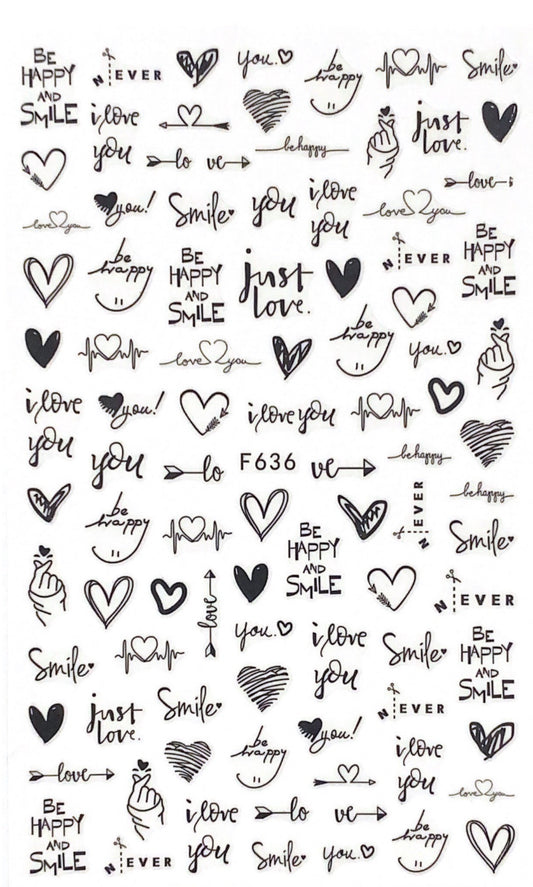 BE
HAPPY
AND
SMILE
N EVER
you.
be
happy
Smile
i love
you
lo ve
be happy
just
love.
love
love you
you!
Smile
you
i love
you
love you
N EVER
BE
HAPPY
AND
SMILE
be
happy
BE
HAPPY
AND
SMILE
just
love.
be
happy
love you
you.
i love
you
you!
i love you
you
lo
F636
ve
be happy
be happy
be
happy
BE
HAPPY
AND
SMILE
N EVER
Smile
love
N EVER
Smile
you.
i love
you
Smile
BE
HAPPY
AND
SMILE
just
love.
Smile
be
happy
you!
N EVER
i love
you
love
love you
BE
HAPPY
AND
SMILE
N EVER
i love
you
lo ve
Smile
you.
be
happy